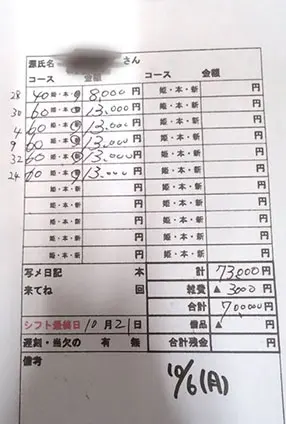 源氏名 さん
コース 金額 コース 金額
28 40 姫・本・新 8,000円 姫・本・新 円
30 60 姫・本・新 13,000円 姫・本・新 円
4 60 姫・本・新 13,000円 姫・本・新 円
9 60 姫・本・新 13,000円 姫・本・新 円
32 60 姫・本・新 13,000円 姫・本・新 円
24 60 姫・本・新 13,000円 姫・本・新 円
姫・本・新 円 姫・本・新 円
姫・本・新 円 姫・本・新 円
姫・本・新 円 姫・本・新 円
姫・本・新 円 姫・本・新 円
写メ日記 本 計 73,000円
来てね 回 雑費 ▲ 3000円
合計 70,000円
シフト最終日 10月21日 備品 ▲ 円
遅刻・当欠の 有 無 合計残金 円
備考
10/6(月)